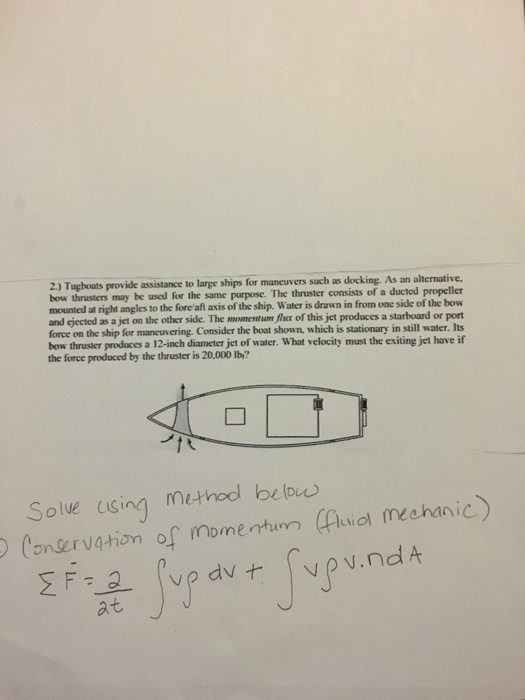 2.) Tugboats provide assistance to large ships for maneuvers such as docking. As an alternative,
bow thrusters may be used for the same purpose. The thruster consists of a ducted propeller
mounted at right angles to the fore/aft axis of the ship. Water is drawn in from one side of the bow
and ejected as a jet on the other side. The momentum flux of this jet produces a starboard or port
force on the ship for maneuvering. Consider the boat shown, which is stationary in still water. Its
bow thruster produces a 12-inch diameter jet of water. What velocity must the exiting jet have if
the force produced by the thruster is 20,000 lbf?
Solve using method below
Conservation of momentum (fluid mechanic)
Σ F̄ = ∂/∂t ∫vρ dv + ∫vρv.ndA